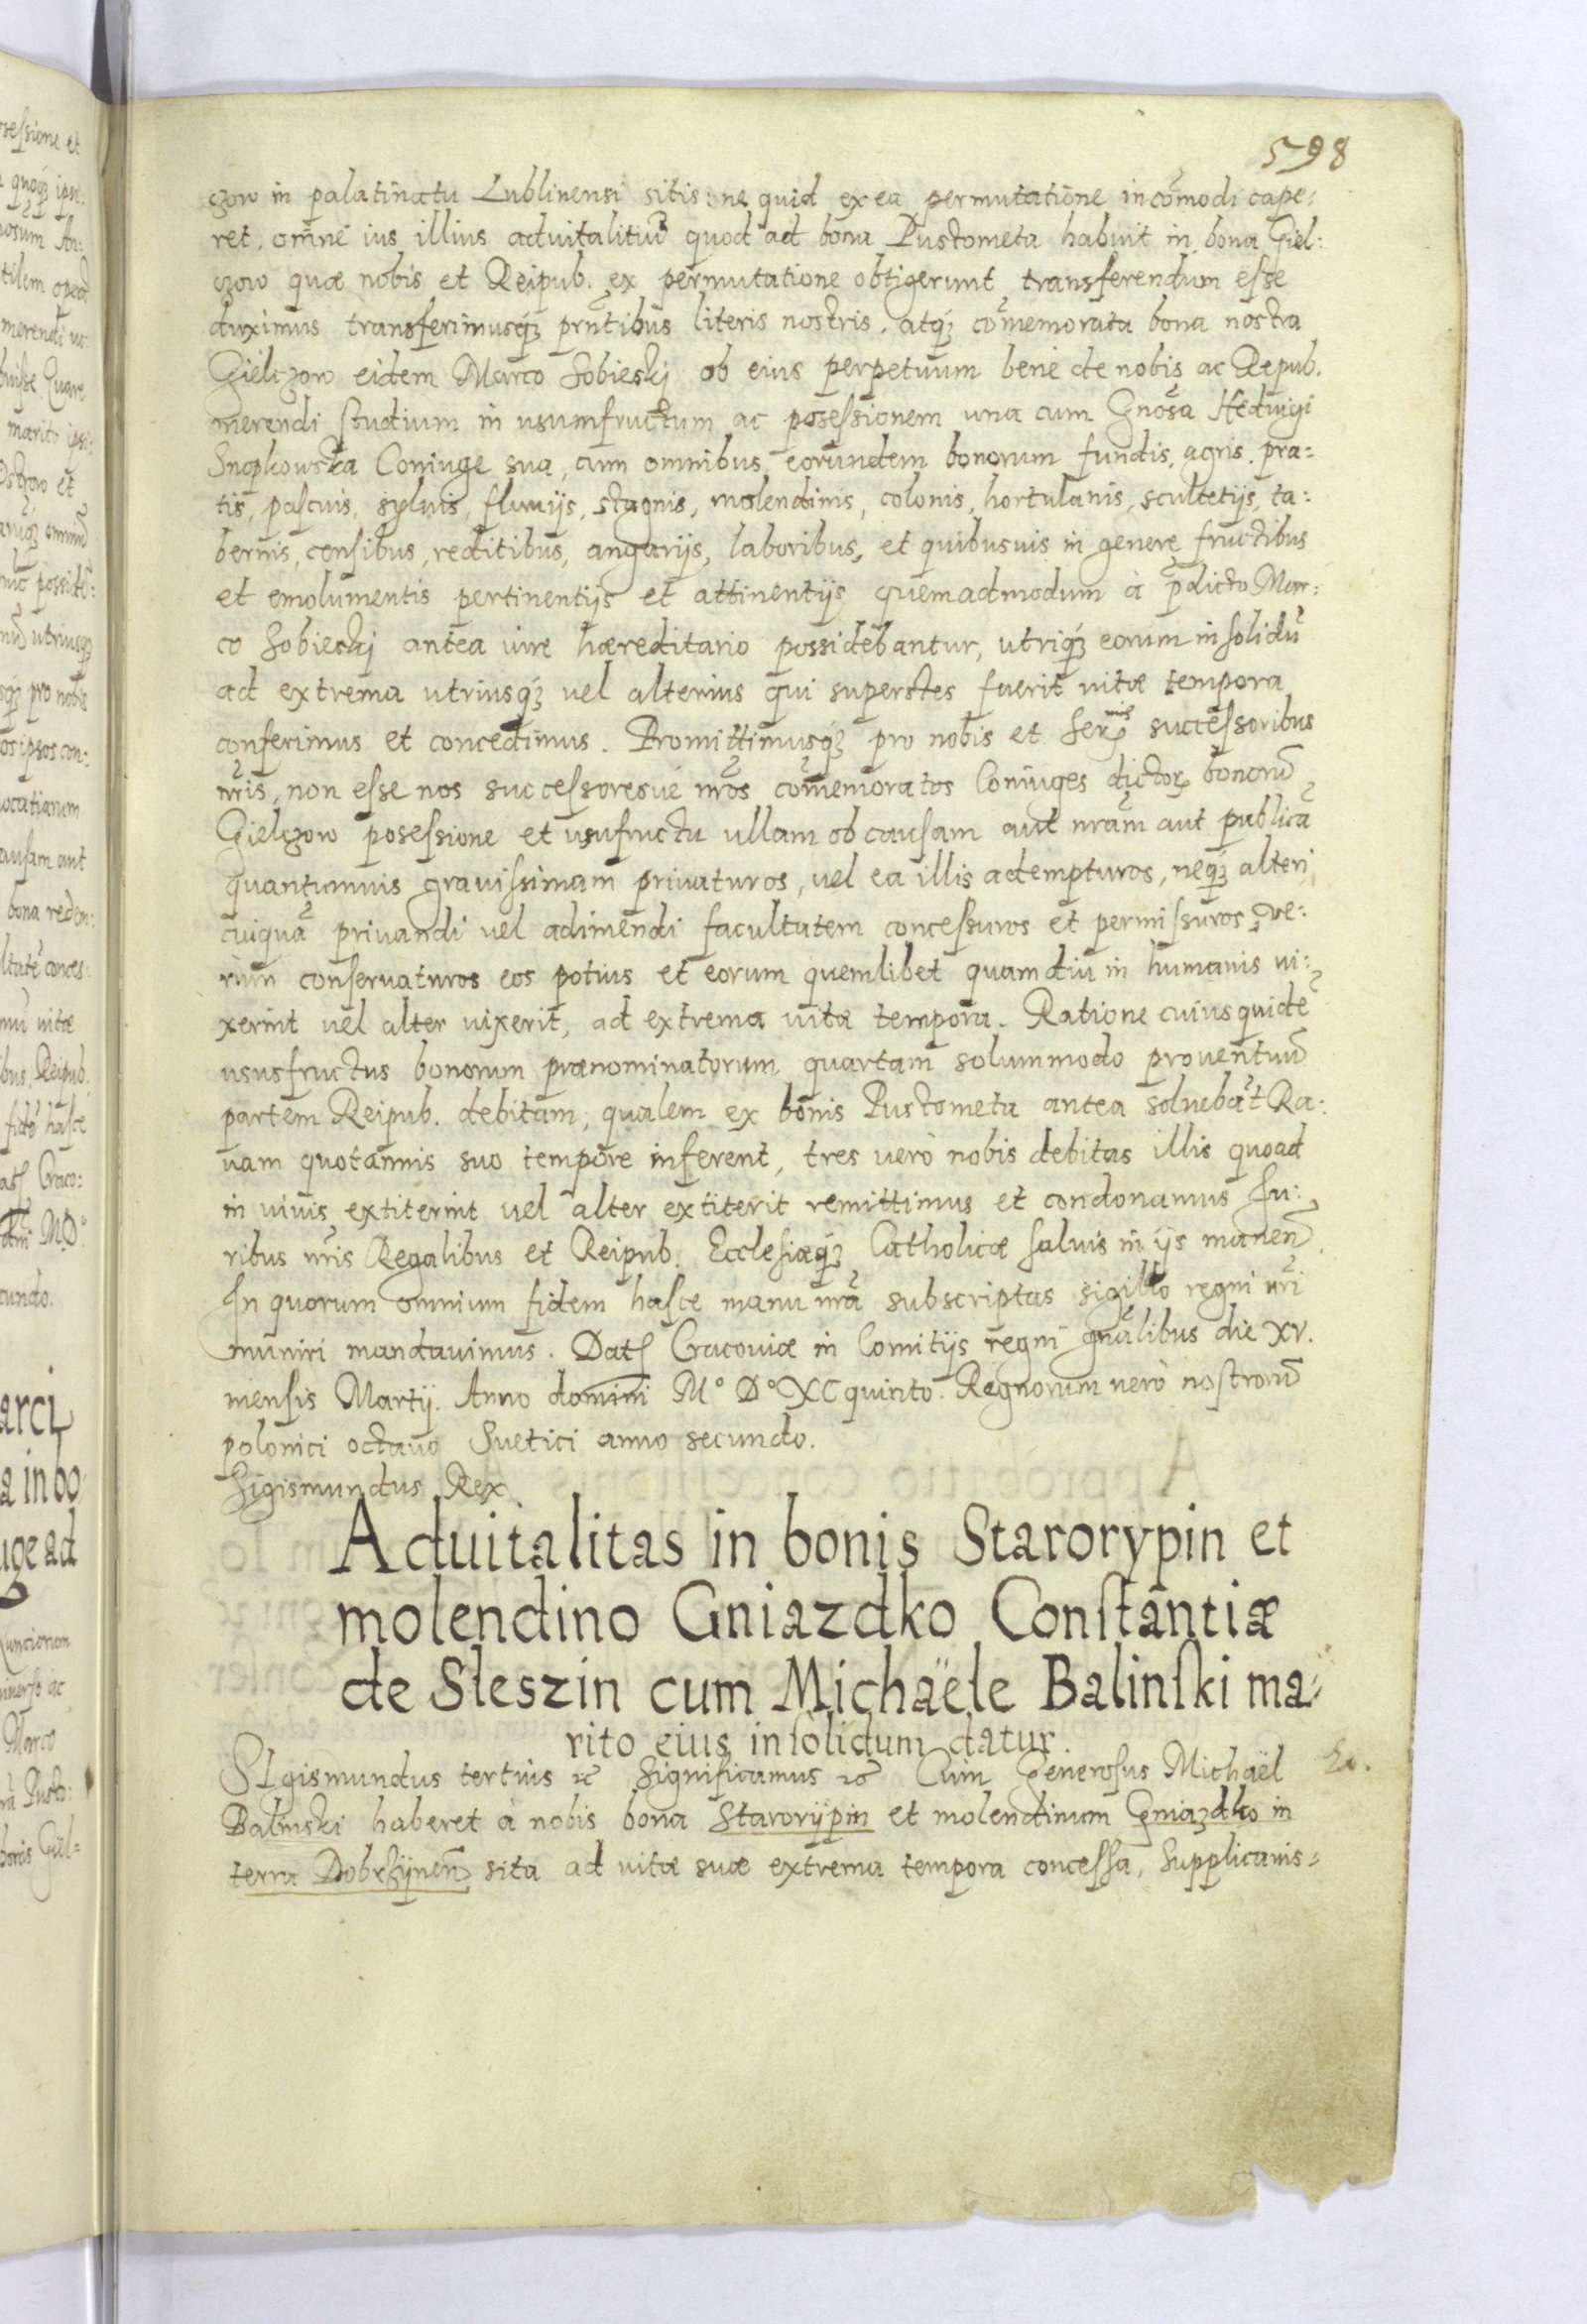 598
czow in palatinatu Lublinensi sitis: ne quid ex ea permutatione incõmodi cape:
ret, omne ius illius aduitalitiũ quod ad bona Pustometa habuit in bona Giel:
czow quæ nobis et Reipub. ex permutatione obtigerunt transferendum esse
duximus transferimusq́ꝫ prñtibus literis nostris. atq́ꝫ cõmemorata bona nostra
Gielczow eidem Marco Sobieskj ob eius perpetuum bene de nobis ac Repub.
merendi studium in usumfructum ac posessionem una cum Gnõsa Heduigi
Snopkowska Coniuge sua, cum omnibus eorundem bonorum fundis, agris. pra=
tis, pascuis, syluis, fluuijs, stagnis, molendinis, colonis, hortulanis, scultetijs, ta:
bernis, censibus, reditibus, angarijs, laboribus, et quibusuis in genere fructibus
et emolumentis pertinentijs et attinentijs quemadmodum à p̃dicto Mar:
co Sobieskj antea iure hæreditario possidebantur, utriq́ꝫ eorum in solidũ
ad extrema utriusq́ꝫ uel alterius qui superstes fuerit uitæ tempora
conferimus et concedimus. Promittimusq́ꝫ pro nobis et Sermis successoribus
nr̃is, non esse nos successoresue nr̃os cõmemoratos Coniuges dictoꝝ bonorũ
Gielczow posessione et usufructu ullam ob causam aut nrãm aut publicã
quantumuis grauissimam priuaturos, uel ea illis adempturos, neq́ꝫ alteri
cuiquã priuandi uel adimendi facultatem concessuros et permissuros, ue:
rum conseruaturos eos potius et eorum quemlibet quamdiu in humanis ui:
xerint uel alter uixerit, ad extrema uitæ tempora. Ratione cuius quidẽ
ususfructus bonorum prænominatorum quartam solummodo prouentuũ
partem Reipub. debitam, qualem ex bonis Pustometa antea soluebãt Ra:
uam quotannis suo tempore inferent, tres uerò nobis debitas illis quoad
in uiuis extiterint uel alter extiterit remittimus et condonamus Iu:
ribus nr̃is Regalibus et Reipub. Ecclesiæq́ꝫ Catholicæ saluis in ijs manen̄.
In quorum omnium fidem hasce manu nrã subscriptas sigillo regni nr̃i
muniri mandauimus. Datʃ Cracouiæ in Comitijs regni gñalibus die XV.
mensis Martij. Anno domini M° D° XC quinto. Regnorum uerò nostrorũ
polonici octauo Suetici anno secundo.
Sigismundus Rex
Aduitalitas in bonis Starorypin et
molendino Gniazdko Constantiæ
de Sleszin cum Michaële Balinski ma=
rito eius in solidum datur.
SIgismundus tertius &c Significamus &c Cum Generosus Michaël
Balinski haberet à nobis bona Starorÿpin et molendinum Gniazdko in
terra Dobrzÿnen̄ sita ad uitæ suæ extrema tempora concessa, supplicauis=